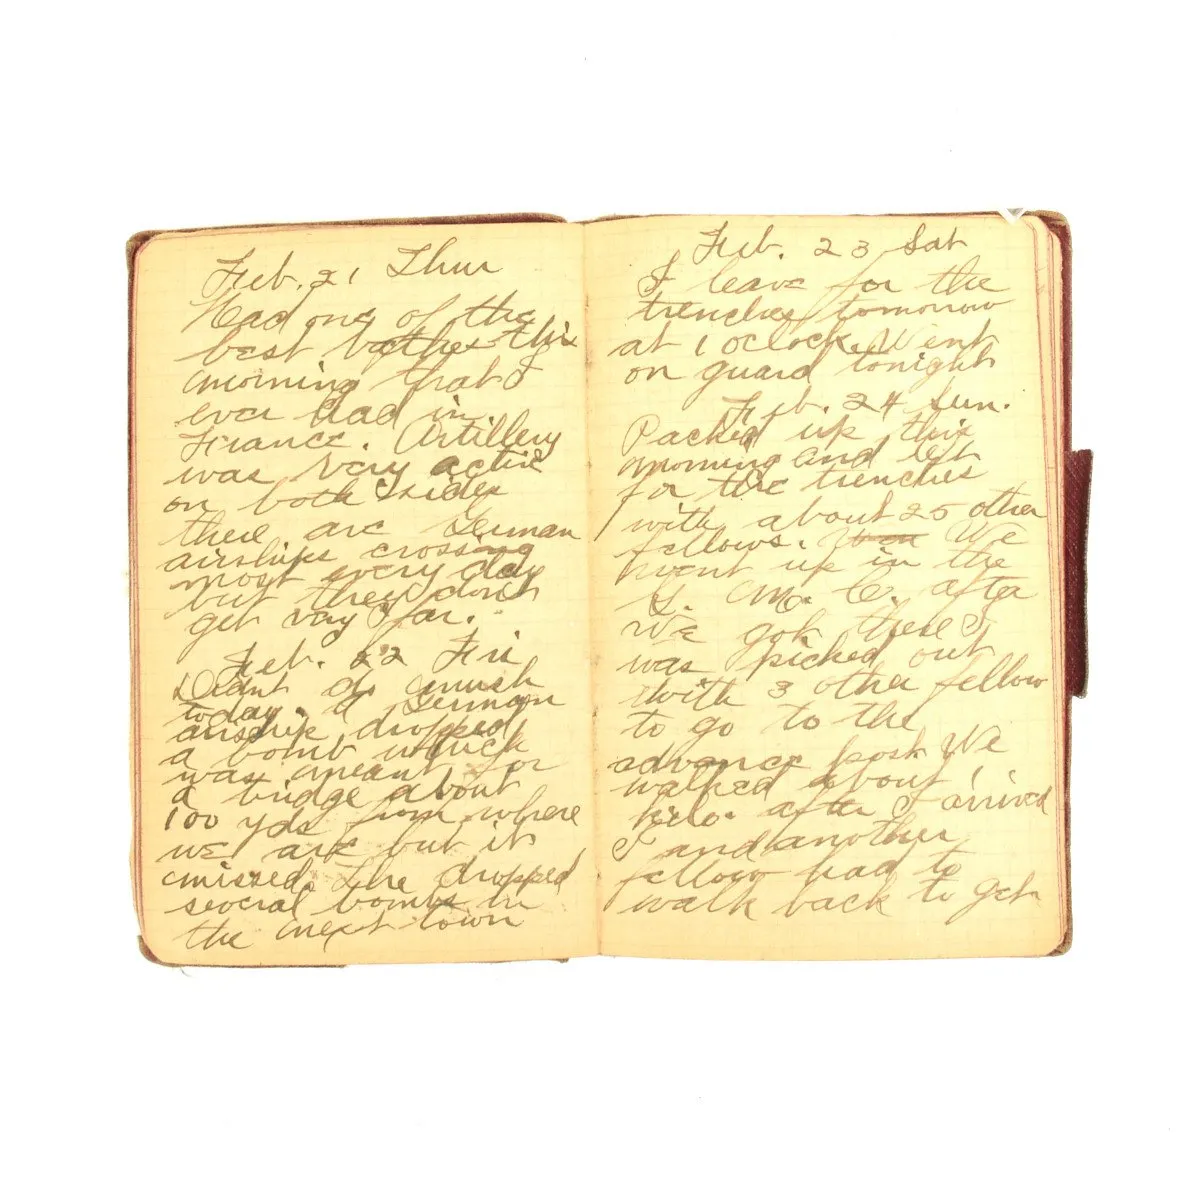 Feb. 21 Thur
Had one of the
best bathes this
morning that I
ever had in
France. Artillery
was very active
on both sides
there are German
airships crossing
most every day
but they dont
get very far.
Feb. 22 Fri
Didnt do much
today. A German
airship dropped
a bomb which
was meant for
a bridge about
100 yds from where
we are but it
missed. He dropped
several bombs in
the next town
Feb. 23 Sat
I leave for the
trenches tomorrow
at 1 oclock. Went
on guard tonight
Feb. 24 Sun.
Packed up this
morning and left
for the trenches
with about 25 other
fellows. We
went up in the
G. M. C. after
we got there I
was picked out
with 3 other fellow
to go to the
advance post We
walked about 1
kilo. after I arrived
I and another
fellow had to
walk back to get